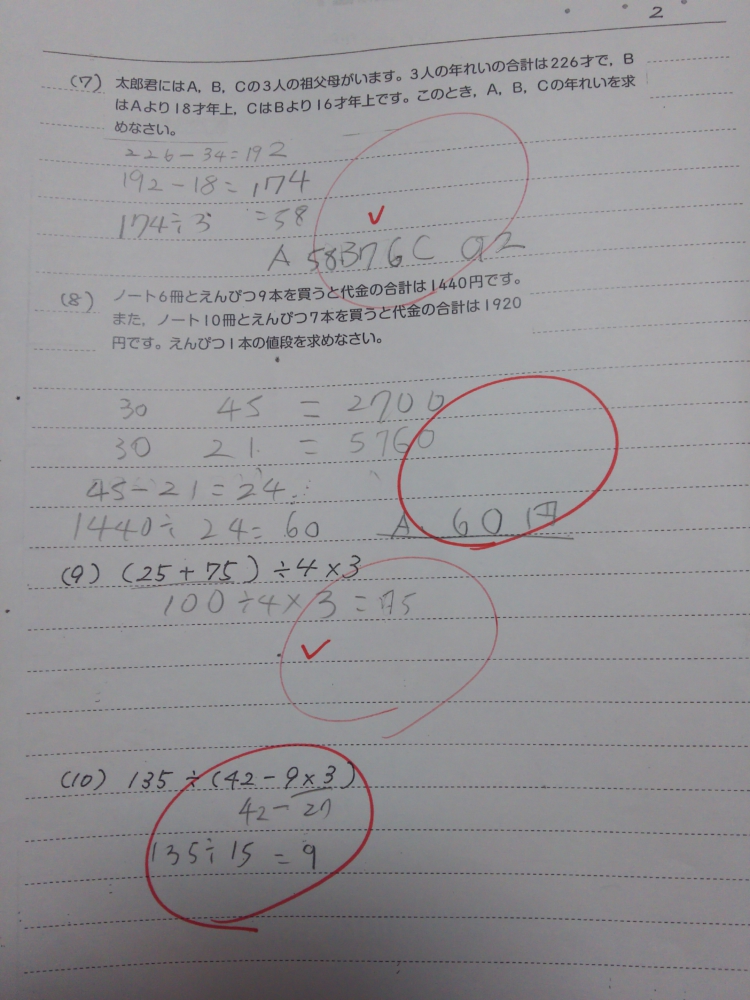 2
(7) 太郎君にはA，B，Cの3人の祖父母がいます。3人の年れいの合計は226才で，B
はAより18才年上，CはBより16才年上です。このとき，A，B，Cの年れいを求
めなさい。
226-34=192
192-18=174
174÷3 =58
A 58B76C 92
(8) ノート6冊とえんぴつ9本を買うと代金の合計は1440円です。
また，ノート10冊とえんぴつ7本を買うと代金の合計は1920
円です。えんぴつ1本の値段を求めなさい。
30 45 = 2700
30 21 = 5760
45-21=24
1440÷24=60 A. 60円
(9) (25+75)÷4×3
100÷4×3=75
(10) 135÷(42-9×3)
42-27
135÷15=9